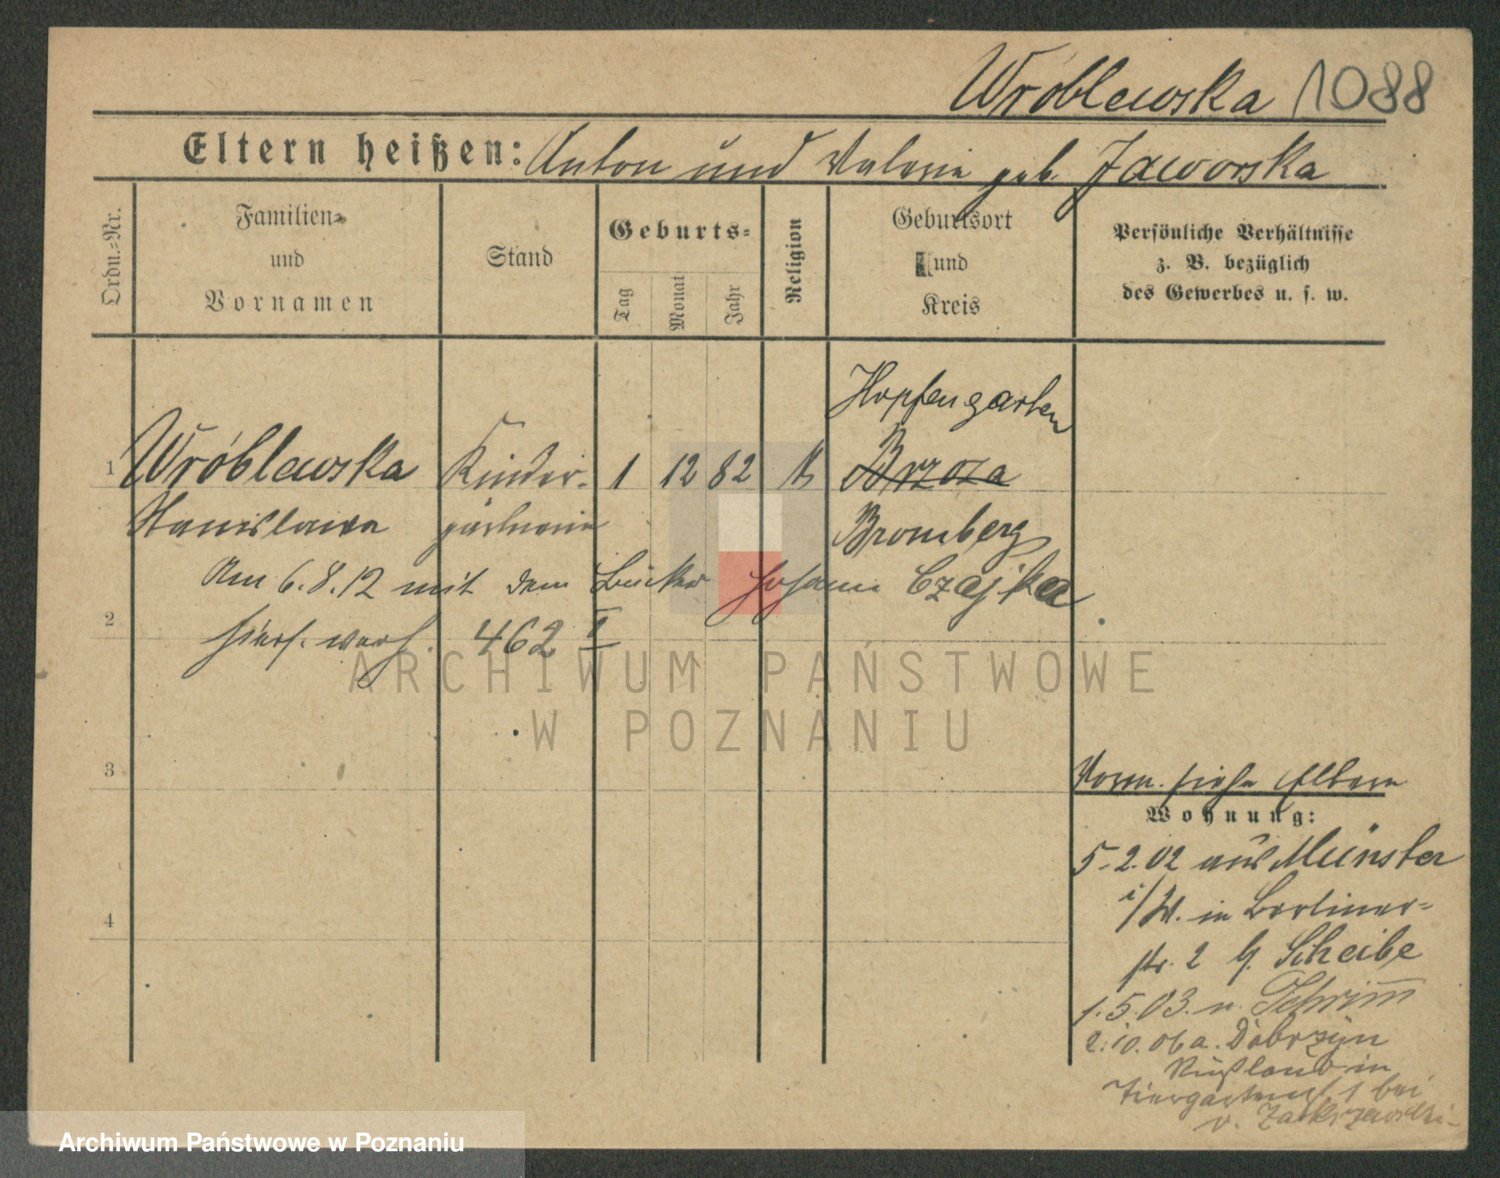 Wróblewska 1088
Eltern heißen: Anton und Valerie geb. Jaworska
Ordn.=Nr.
Familien=
und
Vornamen
Stand
Geburts=
Tag
Monat
Jahr
Religion
Geburtsort
und
Kreis
Persönliche Verhältnisse
z. B. bezüglich
des Gewerbes u. s. w.
Hopfengarten
1 Wróblewska Kinder- 1 12 82 k Brzoza
Stanislawa gärtnerin Bromberg
Am 6.8.12 mit dem Bäcker Johann Czajka
2
hiers. verh. 462 I
ARCHIWUM PAŃSTWOWE
W POZNANIU
3
Vorm. siehe Eltern
Wohnung:
5-2.02 aus Münster
i/W. in Berliner-
4
str. 2 b. Scheibe
1.5.03. n. Schrimm
2.10.06 a. Dobrzyn
Rußland in
Tiergartenst 1 bei
v. Zakrzewski
Archiwum Państwowe w Poznaniu